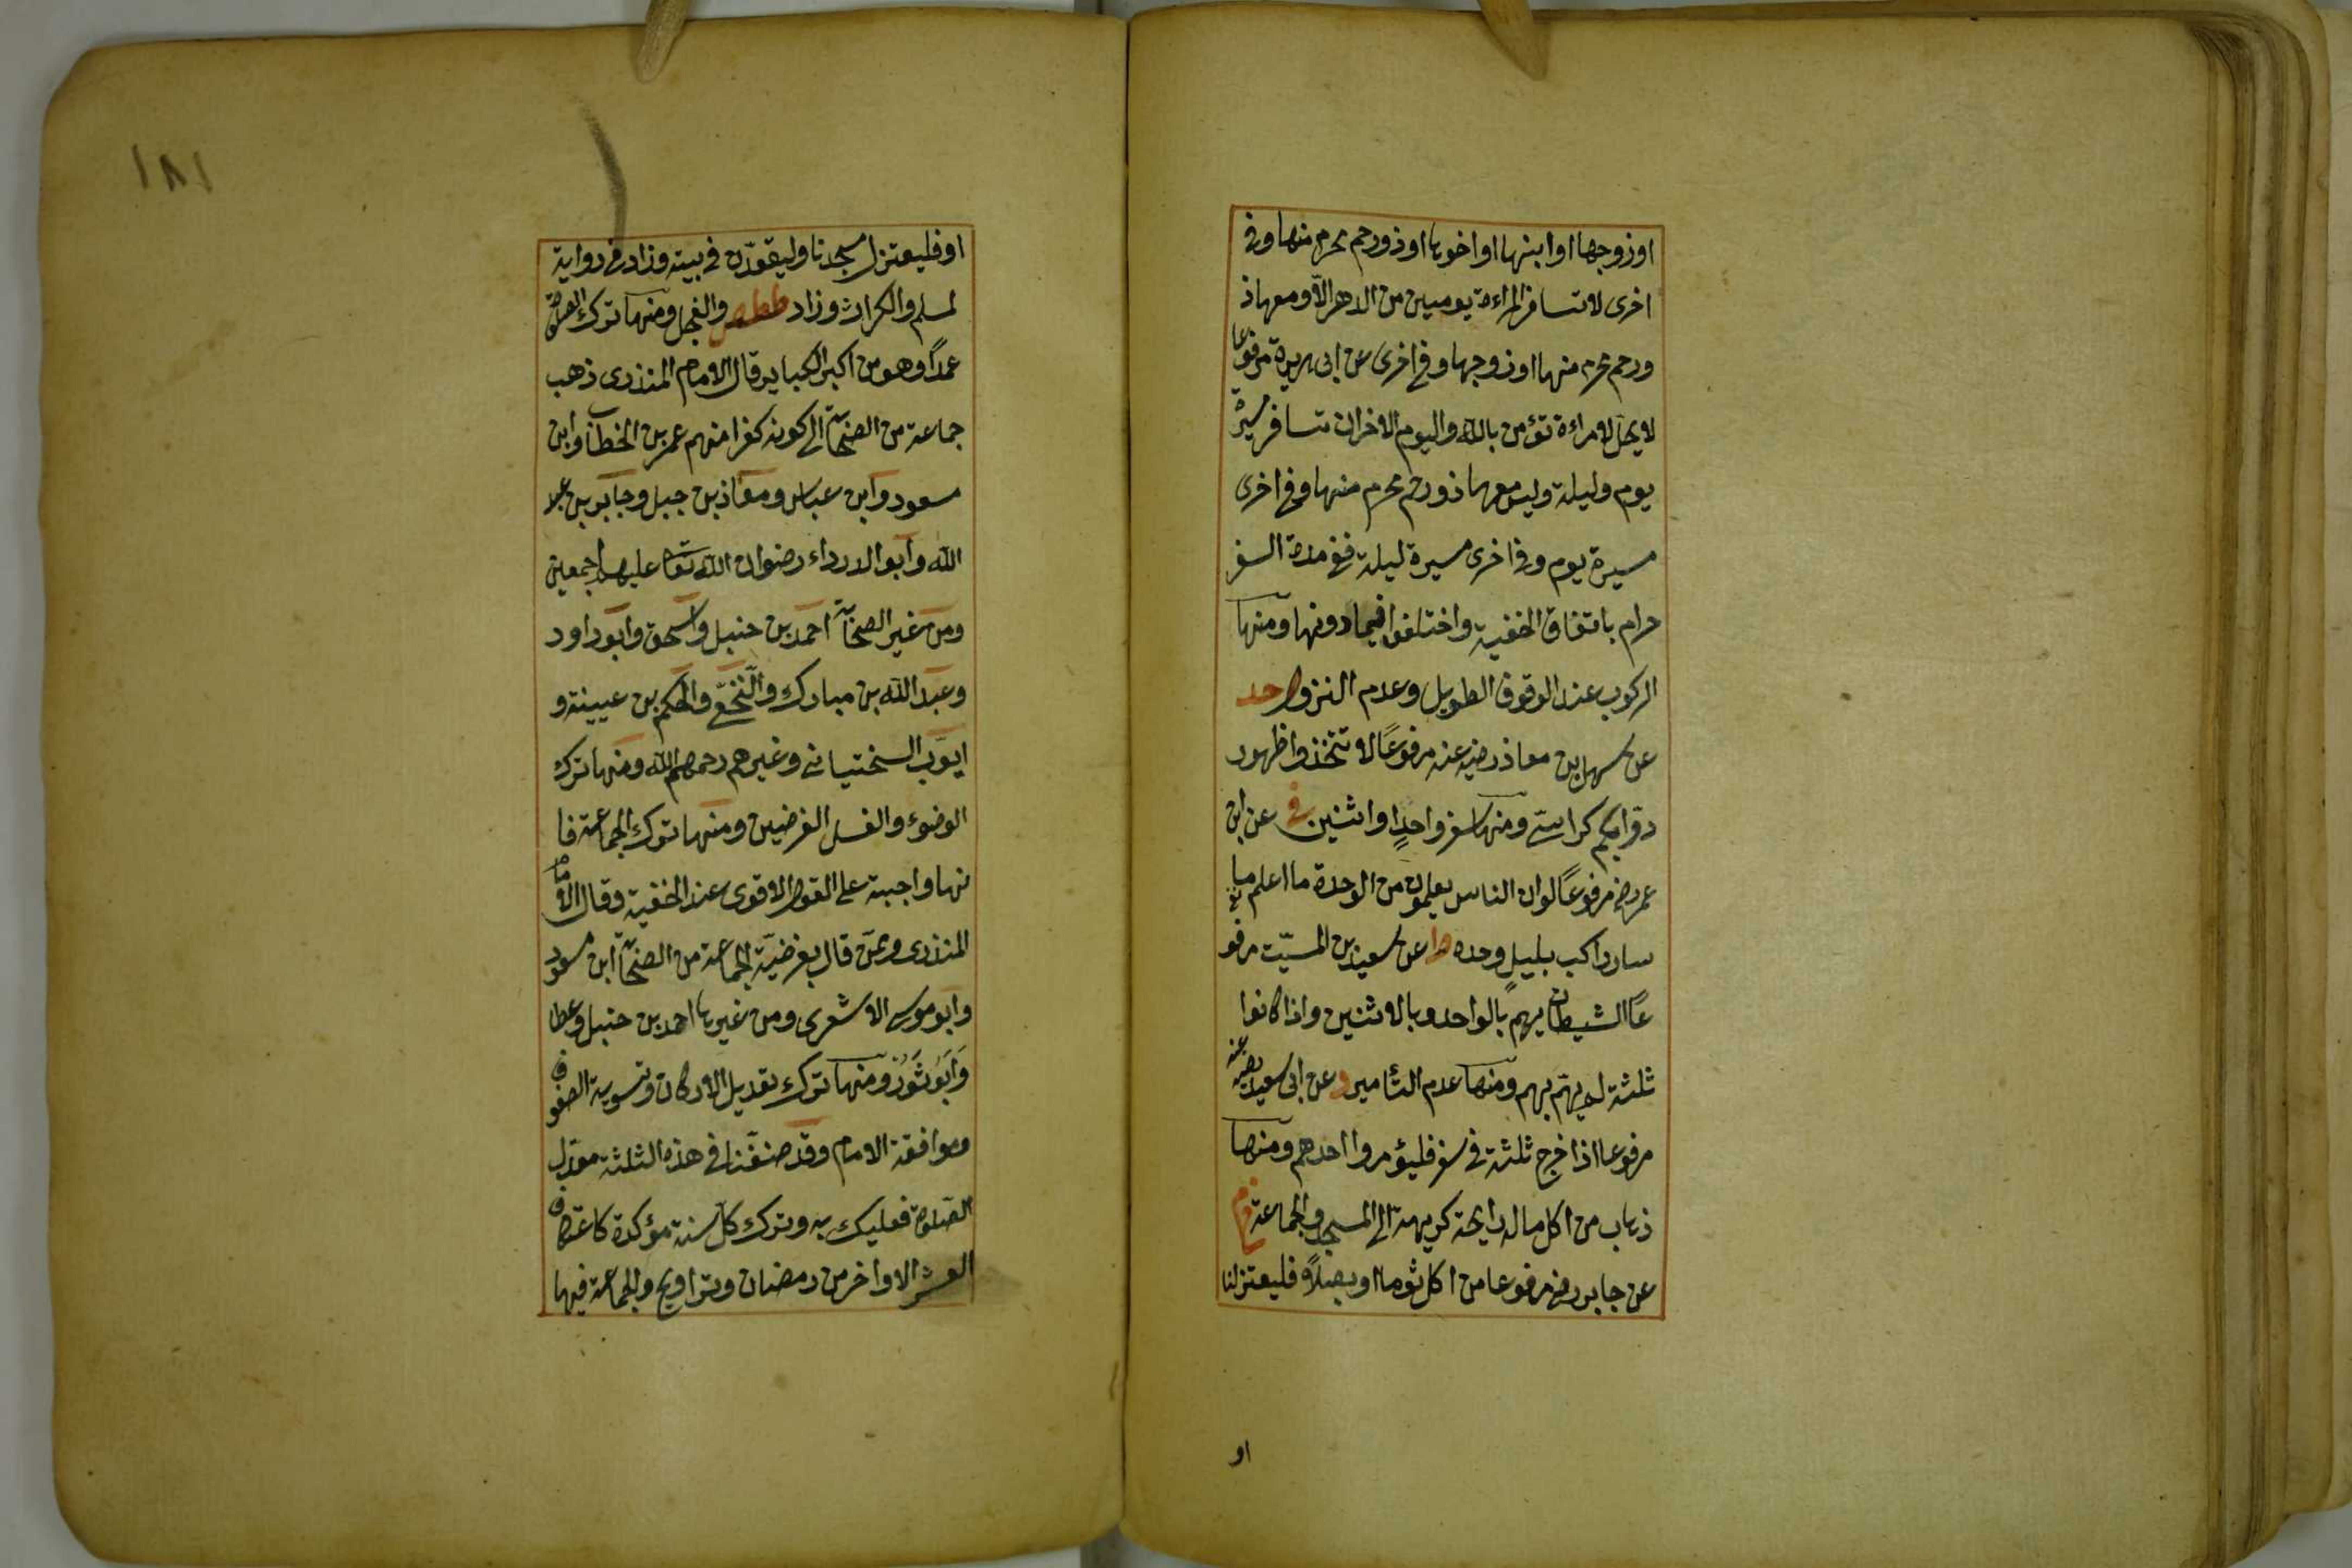 او زوجها او ابنها او اخوها او ذو رحم محرم منها وفى
اخرى لا تسافر المراءة يوميين من الدهر الاّ ومعها ذ
ورحم محرم منها او زوجها وفى اخرى عن ابى هريرة مرفوعا
لا يحل لامراءة تؤمن بالله واليوم الاخر ان تسافر مسيرة
يوم وليلة وليس معها ذو رحم محرم منها وفى اخرى
مسيرة يوم وفى اخرى مسيرة ليلة ففى مدة السفر
حرام باتفاق الحنفية واختلفوا فيما دونها ومنها
الركوب عند الوقوف الطويل وعدم النزول حد
عن سهل بن معاذ رضى عنه مرفوعًا لا تتخذوا ظهور
دوابكم كراسى ومنها سفر واحدٍ او اثنين خ عن ابن
عمر رض مرفوعًا لو ان الناس يعلمون من الوحدة ما اعلم ما
سار راكب بليلٍ وحده ط عن سعيد بن المسيّب مرفو
عًا الشيطان يهمّ بالواحد وبالاثنين واذا كانوا
ثلثة لم يهمّ بهم ومنها عدم التأمير د عن ابى سعيد رضى عنه
مرفوعا اذا خرج ثلثة فى سفر فليؤمروا احدهم ومنها
ذهاب من اكل ماله رايحة كريهة الى المسجد والجماعة خ م
عن جابر رض مرفوعا من اكل ثوما او بصلاً فليعتزلنا
او
١٨١
او فليعتزل مسجدنا وليقعدن فى بيته وزاد فى رواية
لمسلم والكراث وزاد ططص والفجل ومنها ترك الصلوة
عمداً وهو من اكبر الكباير قال الامام المنذرى ذهب
جماعة من الصحابة الى كونه كفرا منهم عمر بن الخطاب وابن
مسعود وابن عباس ومعاذ بن جبل وجابر بن عبد
الله وابو الدرداء رضوان الله تعا عليهم اجمعين
ومن غير الصحابة احمد بن حنبل واسحق وابو داود
وعبد الله بن مبارك والنّخعى والحكم بن عيينة و
ايوّب السختيانى وغيرهم رحمهم الله ومنها ترك
الوضوء والغسل الفرضين ومنها ترك الجماعة فا
نها واجبة على القول الاقوى عند الحنفية وقال الامام
المنذرى وممن قال بفرضيّة الجماعة من الصحابة ابن مسعود
وابو موسى الاشعرى ومن غيرها احمد بن حنبل وعطا
وَاَبُو ثَوْر ومنها ترك تعديل الاركان وتسوية الصفوف
وموافقة الامام وقد صنفّنا فى هذه الثلثة معدل
الصّلوة فعليك به وترك كلّ سنة مؤكدة كاعتكاف
العشر الاواخر من رمضان وتراويح والجماعة فيها